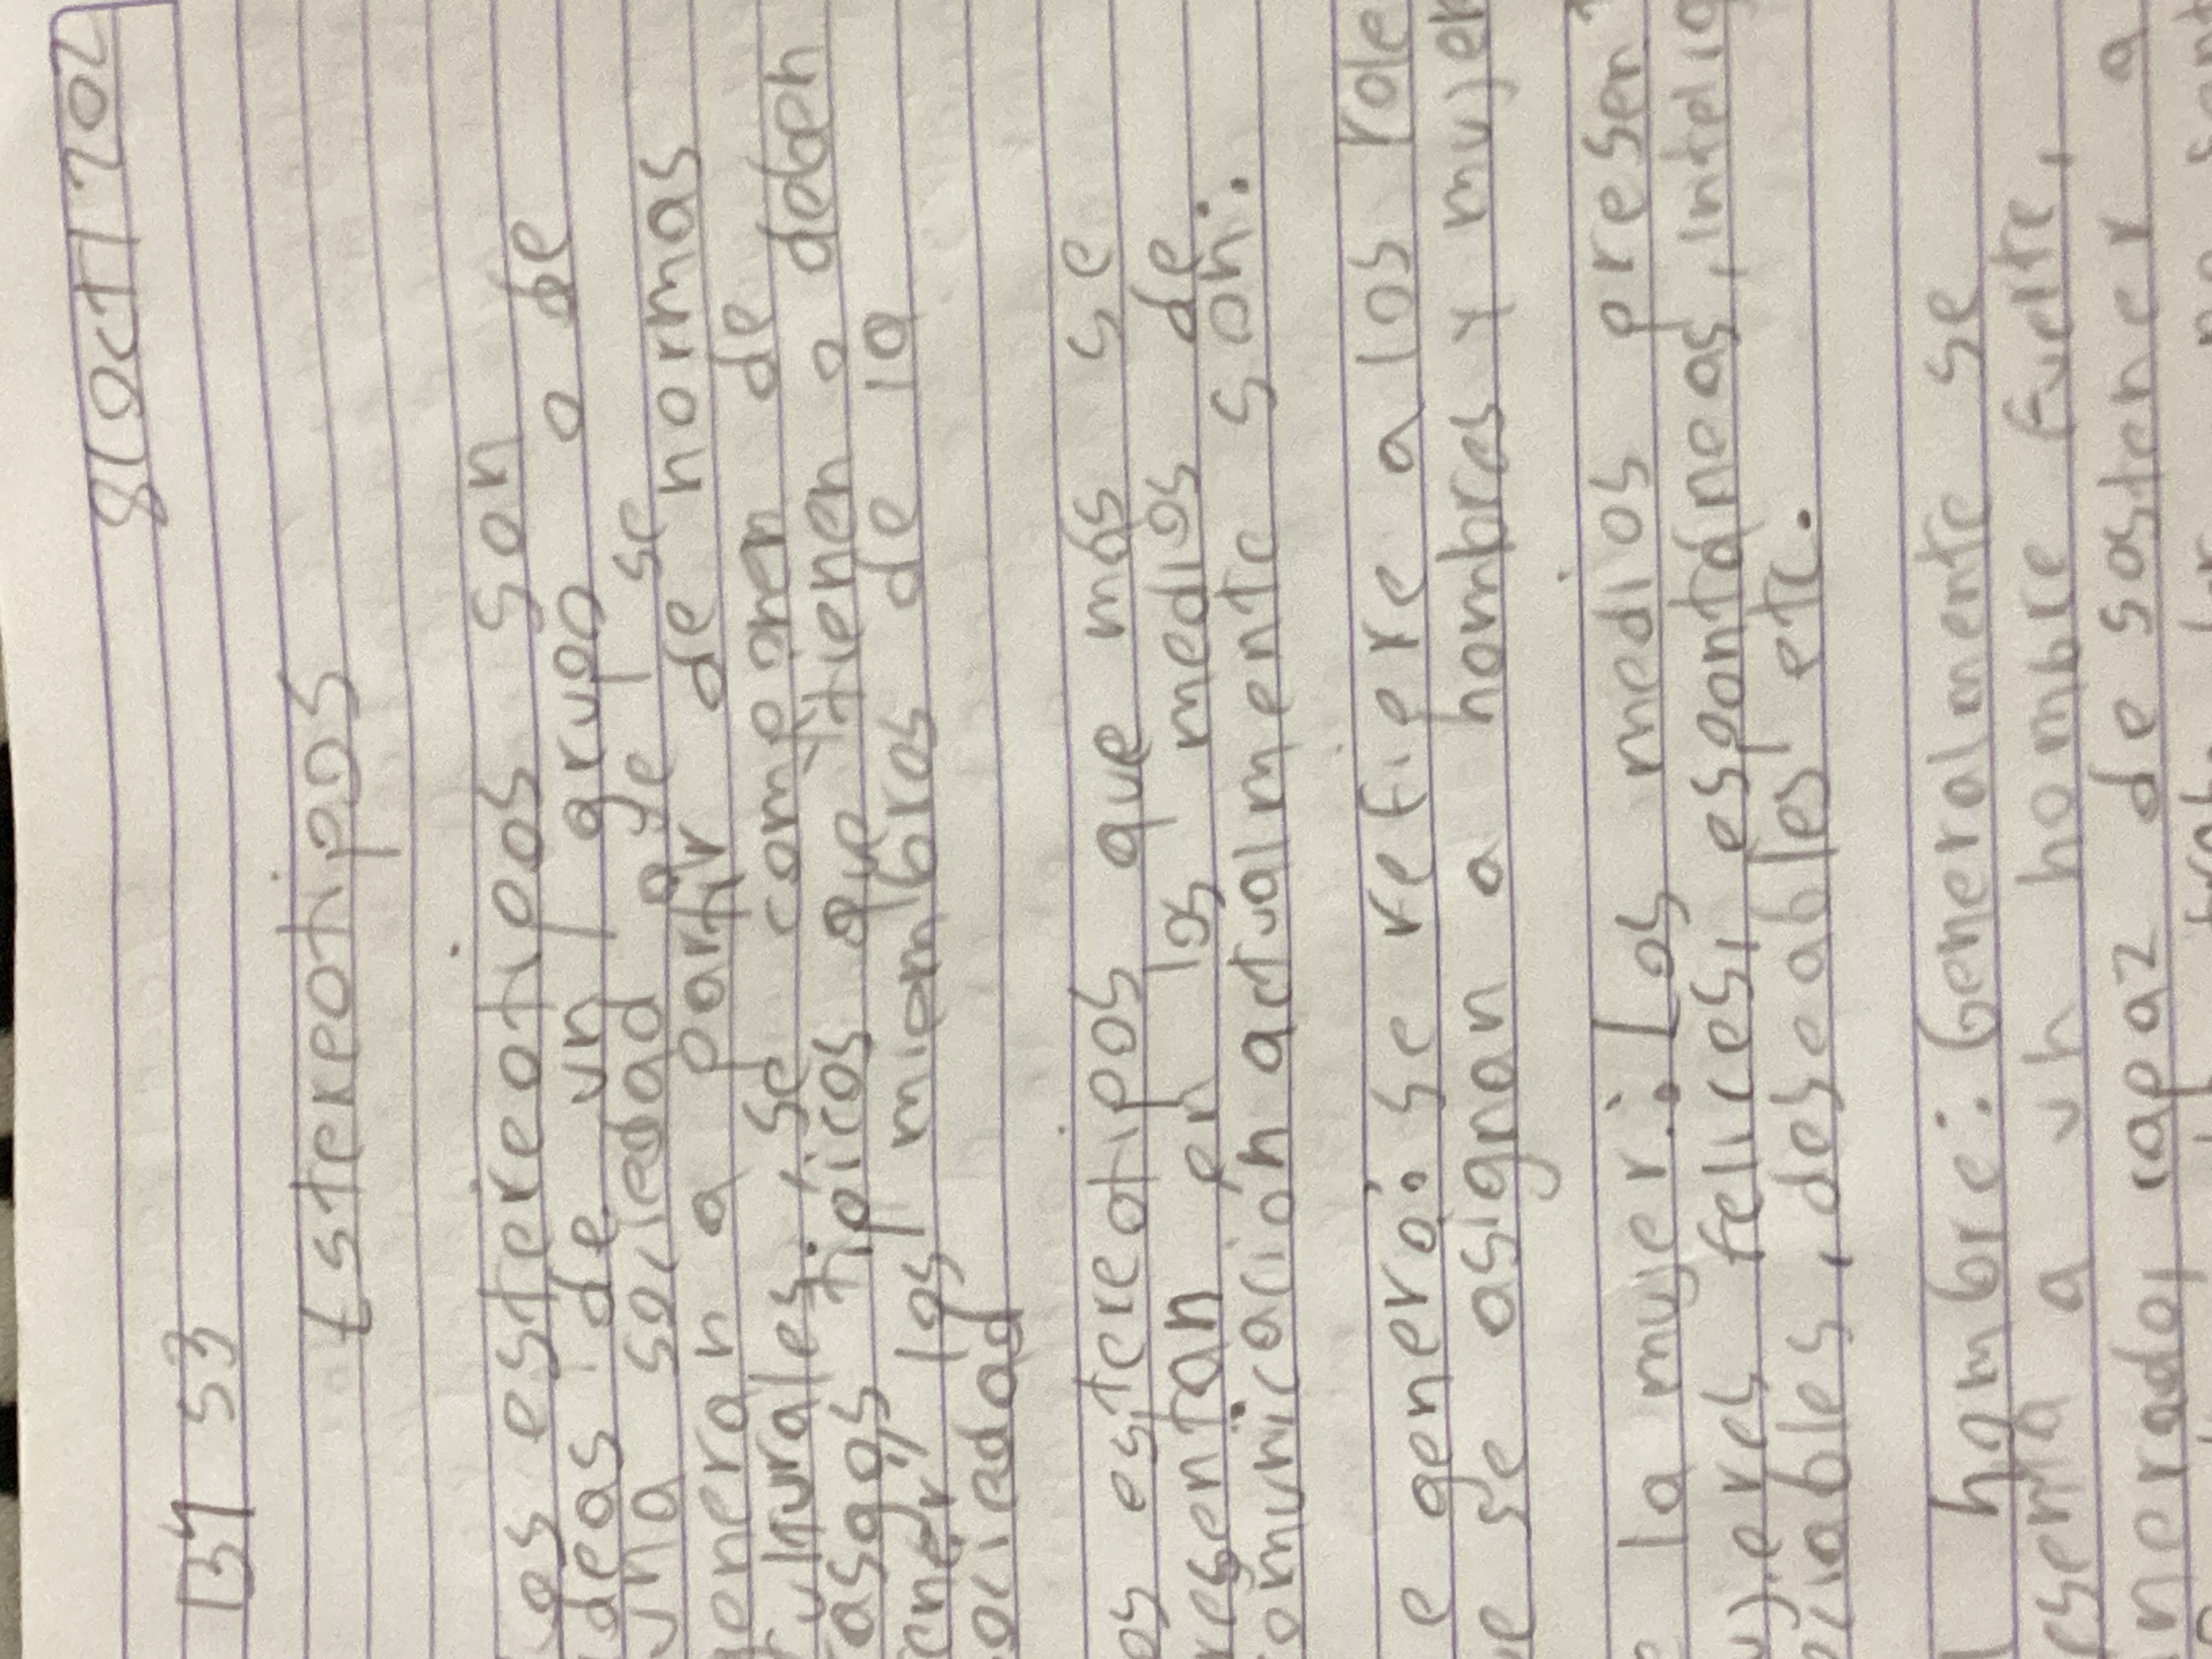 8/Oct/202
B4 S3
Estereotipos
Los estereotipos son
ideas de un grupo o de
una sociedad que se
generan a partir de normas
culturales. Se componen de
rasgos típicos que tienen o deben
tener los miembros de la
sociedad
os estereotipos que más se
resentan en los medios de
omunicación actualmente son:
e genero: se refiere a los role
ue se asignan a hombres y mujer
e la mujer: Los medios presen
ujeres felices, espontáneas, intelig
ociables, deseables, etc.
l hombre: Generalmente se
esenta a un hombre fuerte,
nerador, capaz de sostener a